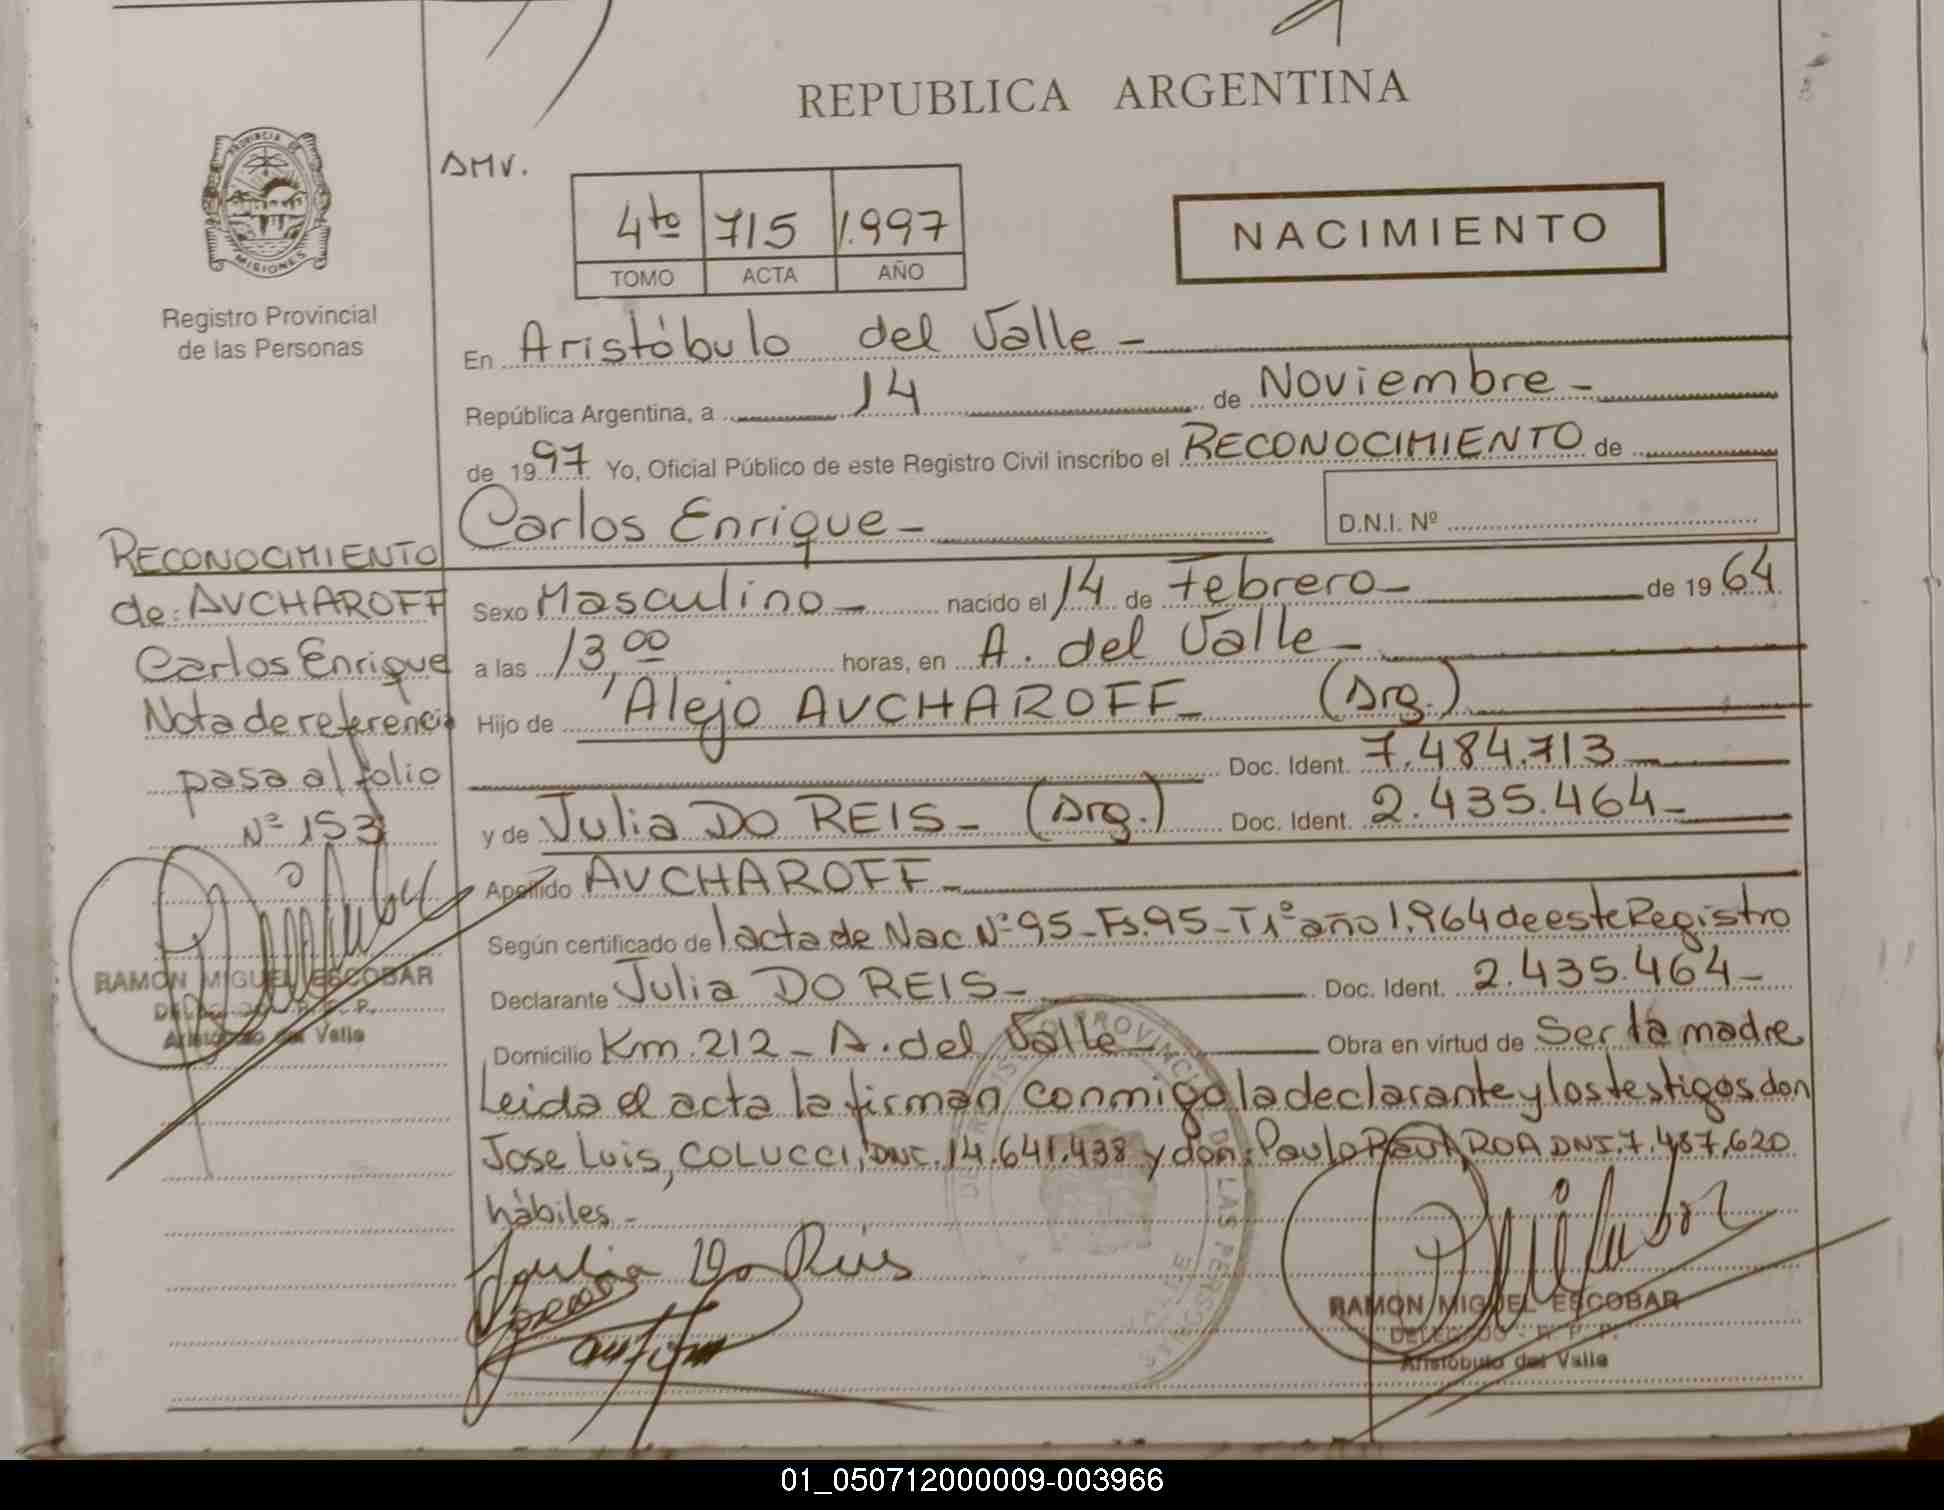 REPUBLICA ARGENTINA
PROVINCIA DE
MISIONES
Registro Provincial
de las Personas
AMV.
4to 715 1.997
TOMO ACTA AÑO
NACIMIENTO
En Aristóbulo del Valle -
República Argentina, a 14 de Noviembre -
de 19 97 Yo, Oficial Público de este Registro Civil inscribo el RECONOCIMIENTO de
Carlos Enrique - D.N.I. Nº
RECONOCIMIENTO
de: AVCHAROFF
Carlos Enrique
Nota de referencia
pasa al folio
Nº 153
RAMON MIGUEL ESCOBAR
Aristóbulo del Valle
Sexo Masculino - nacido el 14 de Febrero - de 19 64
a las 13,00 horas, en A. del Valle -
Hijo de Alejo AVCHAROFF - (Arg.)
Doc. Ident. 7.484.713
y de Julia DO REIS - (Arg.) Doc. Ident. 2.435.464 -
Apellido AVCHAROFF -
Según certificado de l acta de Nac Nº 95 - Fs. 95 - T 1º año 1.964 de este Registro
Declarante Julia DO REIS - Doc. Ident. 2.435.464 -
Domicilio Km. 212 - A. del Valle - Obra en virtud de Ser la madre
Leida el acta la firman conmigo la declarante y los testigos don
Jose Luis, COLUCCI, 14.641.438 y don: Paulo ROA DNI. 7.487.620
hábiles -
Julia Do Reis
RAMON MIGUEL ESCOBAR
DELEGADO - R. P. P.
Aristóbulo del Valle
01_050712000009-003966